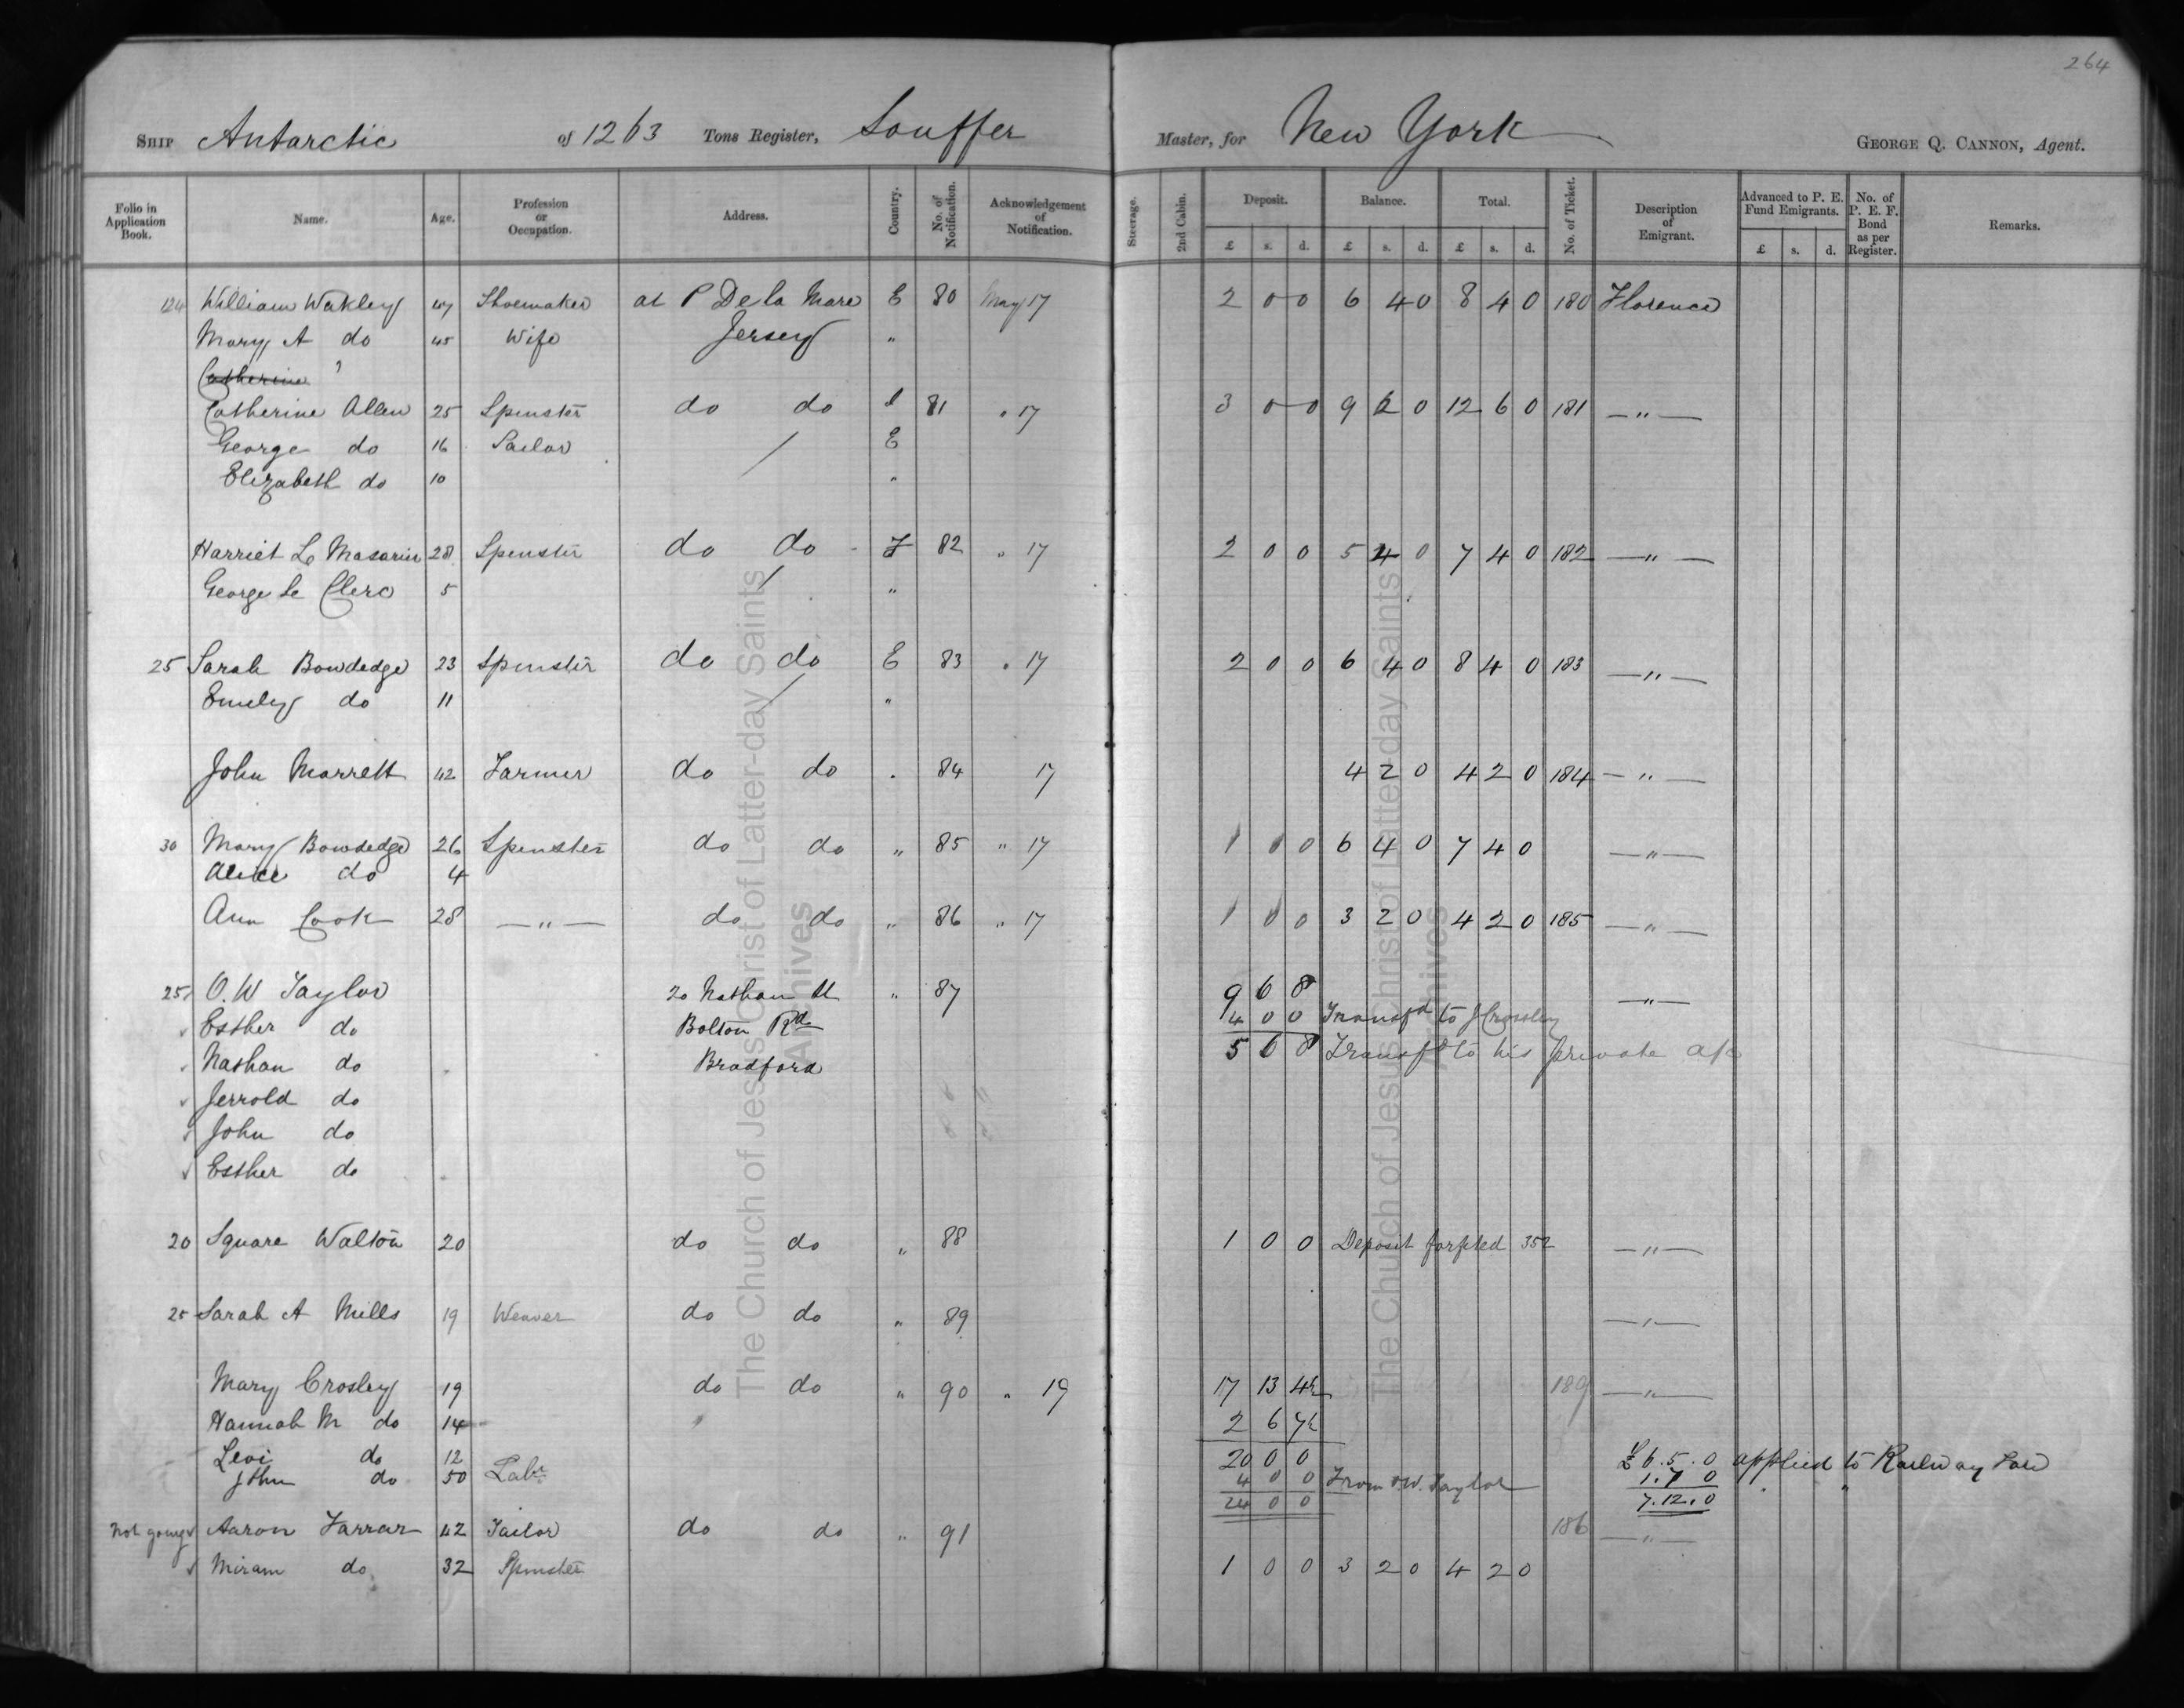 264
SHIP Antarctic of 1263 Tons Register, Souffer Master, for New York GEORGE Q. CANNON, Agent.
Folio in Application Book. Name. Age. Profession or Occupation. Address. Country. No. of Notification. Acknowledgement of Notification. Steerage. 2nd Cabin. Deposit. Balance. Total. No. of Ticket. Description of Emigrant. Advanced to P. E. Fund Emigrants. No. of P. E. F. Bond as per Register. Remarks.
£ s. d. £ s. d. £ s. d. £ s. d.
124 William Wakley 47 Shoemaker at P De la Mare E 80 May 17 2 0 0 6 4 0 8 4 0 180 Florence
Mary A do 45 Wife Jersey "
Catherine "
Catherine Allen 25 Spinster do do 81 " 17 3 0 0 9 6 0 12 6 0 181 — " —
George do 16 Sailor E
Elizabeth do 10 "
Harriet Le Masurier 28 Spinster do do J 82 " 17 2 0 0 5 4 0 7 4 0 182 — " —
George Le Clerc 5 "
25 Sarah Bowdedge 23 Spinster do do E 83 " 17 2 0 0 6 4 0 8 4 0 183 — " —
Emily do 11 "
John Marrett 42 Farmer do do " 84 17 4 2 0 4 2 0 184 — " —
30 Mary Bowdedge 26 Spinster do do " 85 " 17 1 0 0 6 4 0 7 4 0 — " —
Alice do 4
Ann Cook 28 — " — do do " 86 " 17 1 0 0 3 2 0 4 2 0 185 — " —
25 O. W Taylor 20 Nathan St " 87 9 6 8 — " —
Esther do Bolton Rd 4 0 0 Transfd to J Crossley
Nathan do Bradford 5 6 8 Transfd to his private a/c
Jerrold do
John do
Esther do
20 Square Walton 20 do do " 88 1 0 0 Deposit forfted 352 — " —
25 Sarah A Mills 19 Weaver do do " 89 — " —
Mary Crosley 19 do do " 90 " 19 17 13 4½ 189 — " —
Hannah M do 14 2 6 7½
Levi do 12 20 0 0 £6.5.0 applied to Railway Fare
John do 50 Labr 4 0 0 From O W. Taylor 1.7 0 " "
24 0 0 7.12.0
Not going Aaron Farrar 42 Tailor do do " 91 186 — " —
Miram do 32 Spinster 1 0 0 3 2 0 4 2 0
The Church of Jesus Christ of Latter-day Saints
Archives
The Church of Jesus Christ of Latter-day Saints
Archives